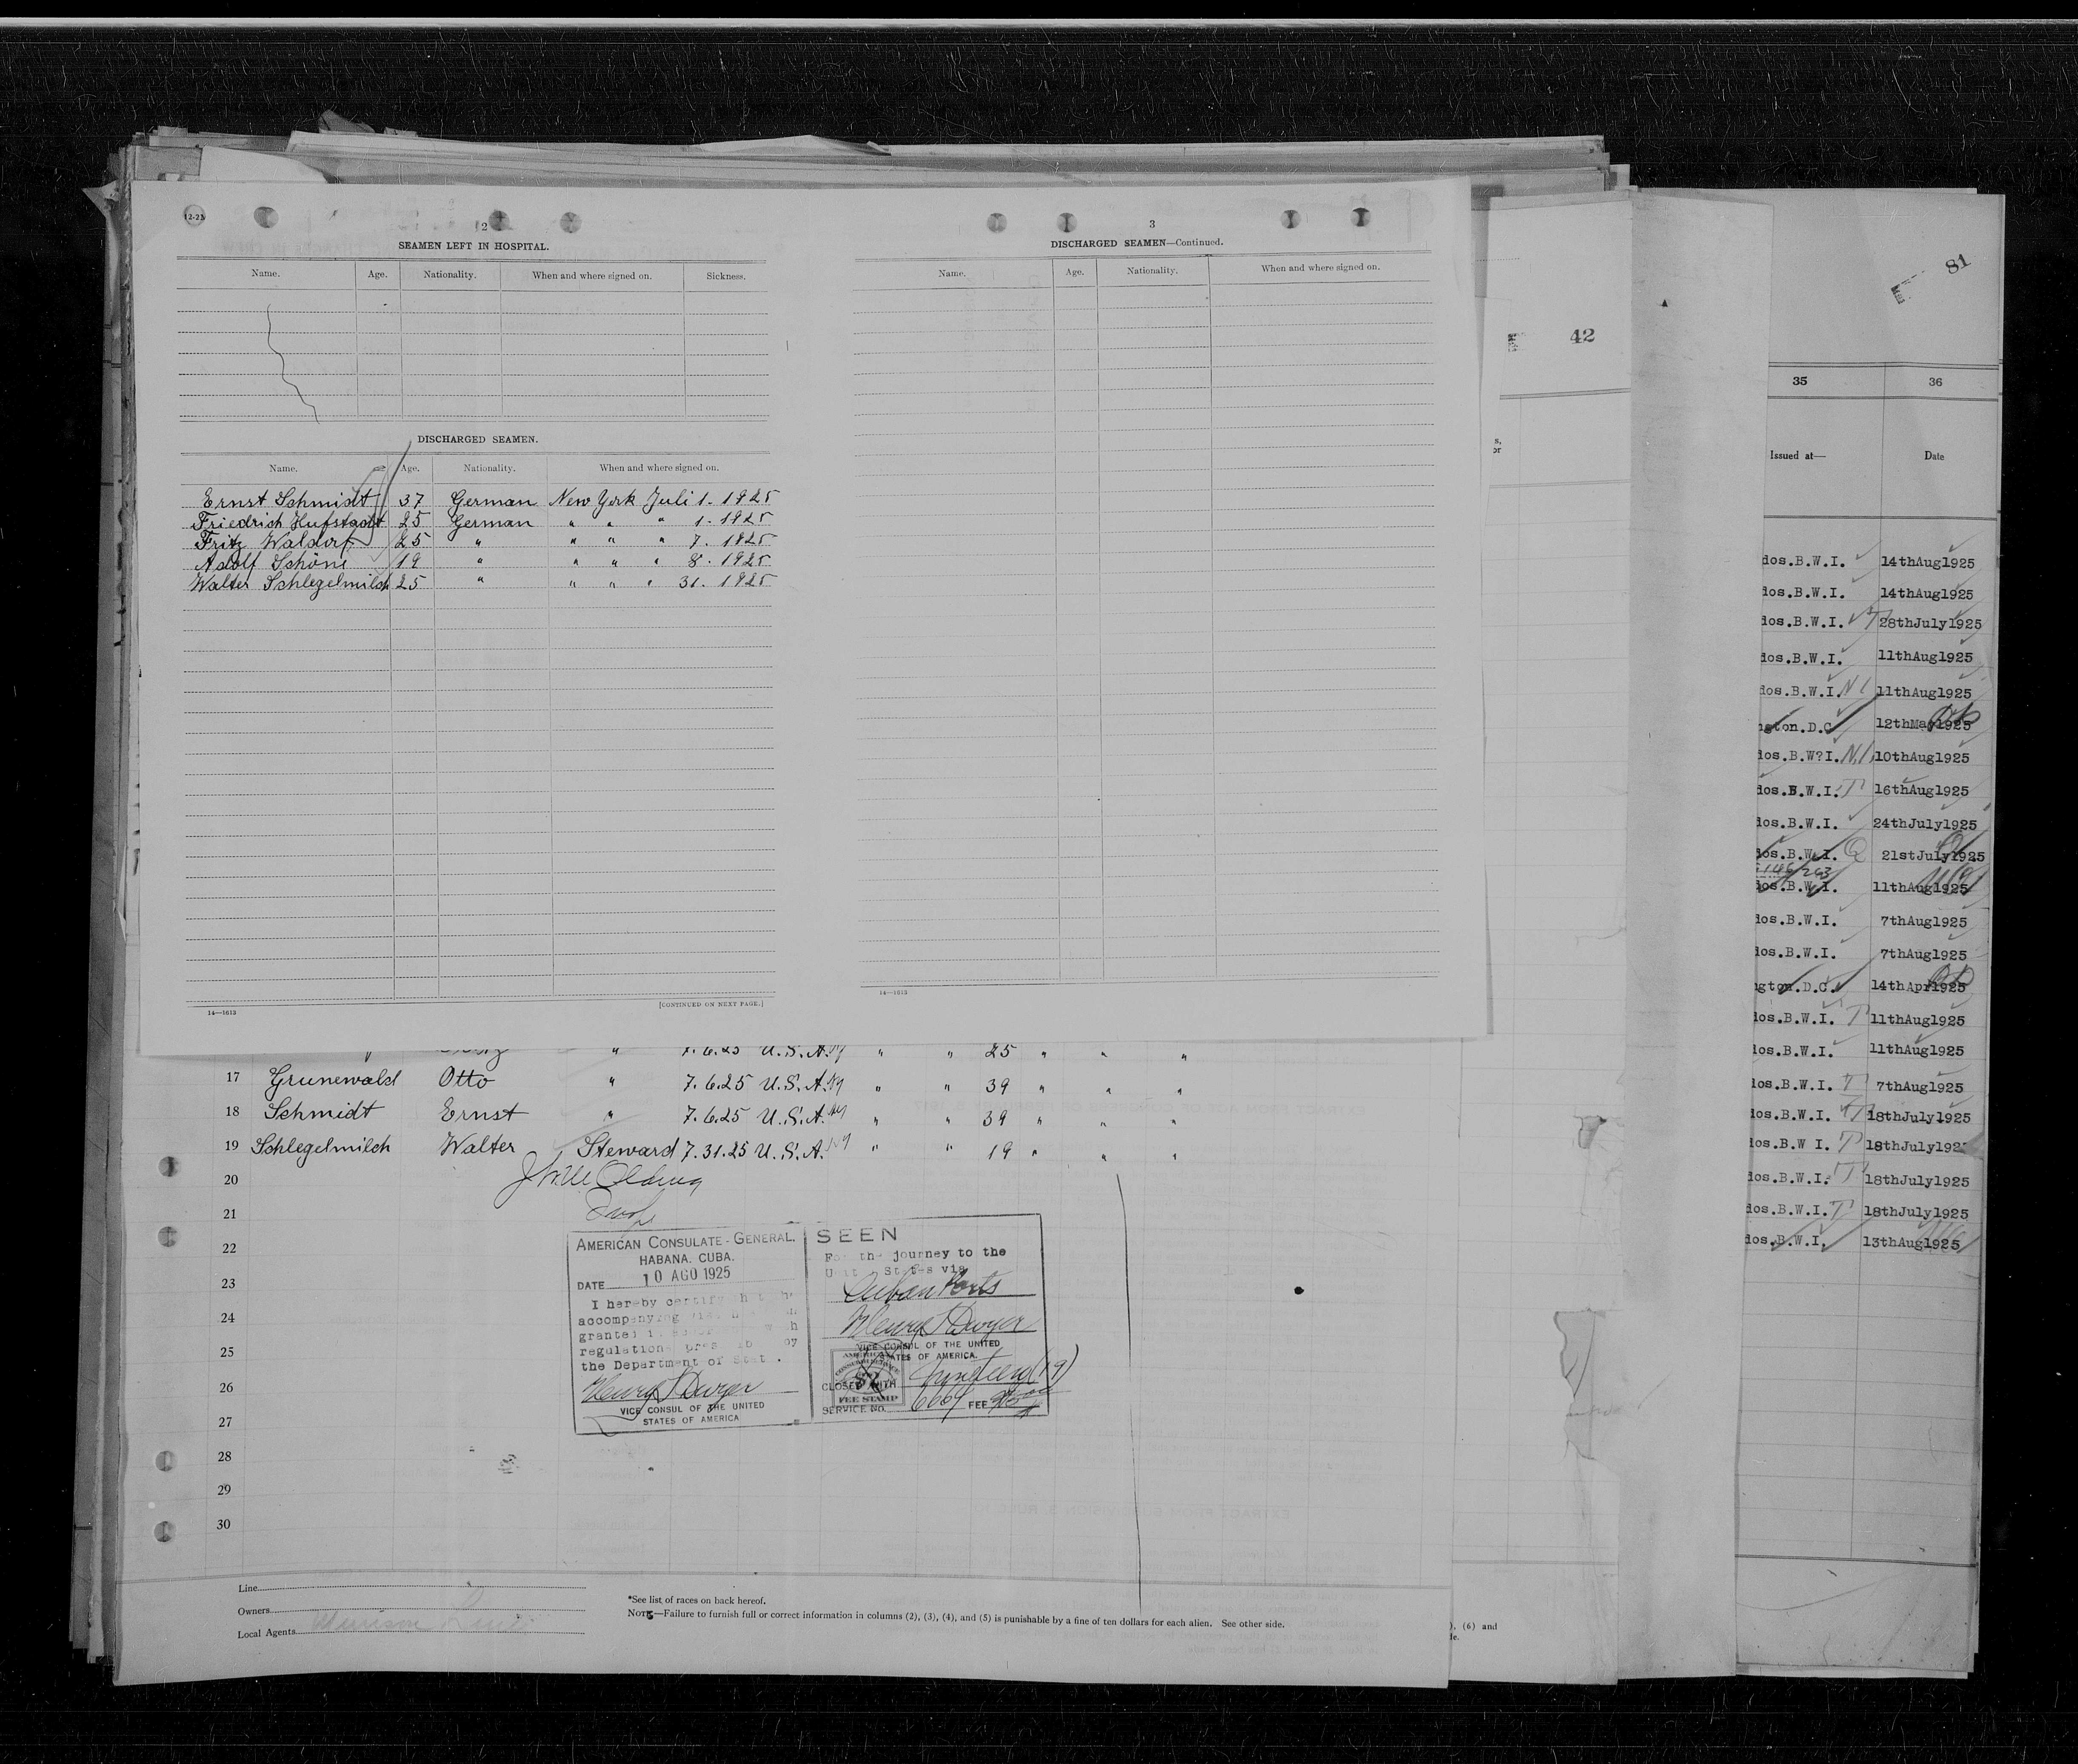 12-23
2
SEAMEN LEFT IN HOSPITAL.
Name. Age. Nationality. When and where signed on. Sickness.
DISCHARGED SEAMEN.
Name. Age. Nationality. When and where signed on.
Ernst Schmidt 37 German New York Juli 1. 1925
Friedrich Hufstadt 25 German " " " 1. 1925
Fritz Waldorf 25 " " " " 7. 1925
Adolf Schöne 19 " " " " 8. 1925
Walter Schlegelmilch 25 " " " " 31. 1925
[CONTINUED ON NEXT PAGE.]
14—1613
3
DISCHARGED SEAMEN—Continued.
Name. Age. Nationality. When and where signed on.
14—1613
" 7.6.25 U.S.A. NY " " 25 " " "
17 Grunewald Otto " 7.6.25 U.S.A. NY " " 39 " " "
18 Schmidt Ernst " 7.6.25 U.S.A. NY " " 39 " " "
19 Schlegelmilch Walter Steward 7.31.25 U.S.A. NY " " 19 " " "
20
21
22
23
24
25
26
27
28
29
30
AMERICAN CONSULATE-GENERAL.
HABANA. CUBA.
DATE 10 AGO 1925
I hereby certify
accompanying
regulation
the Department of
Henry T Dwyer
VICE CONSUL OF THE UNITED
STATES OF AMERICA
SEEN
For the journey to the
United States via
Cuban Ports
Henry T Dwyer
VICE CONSUL OF THE UNITED
STATES OF AMERICA.
AMERICAN
FEE STAMP
CLOSED WITH nineteen (19)
SERVICE NO. 6664 FEE
Line
Owners
Local Agents
*See list of races on back hereof.
NOTE—Failure to furnish full or correct information in columns (2), (3), (4), and (5) is punishable by a fine of ten dollars for each alien. See other side.
), (6) and
le.
42
s,
or
81
35 36
Issued at— Date
dos.B.W.I. 14thAug1925
dos.B.W.I. 14thAug1925
dos.B.W.I. T 28thJuly1925
dos.B.W.I. 11thAug1925
dos.B.W.I. N1 11thAug1925
ngton.D.C. 12thMay1925
dos.B.W?I. N.1. 10thAug1925
dos.B.W.I. T 16thAug1925
dos.B.W.I. 24thJuly1925
dos.B.W.I. Q 21stJuly1925
dos.B.W.I. 11thAug1925
dos.B.W.I. 7thAug1925
dos.B.W.I. 7thAug1925
ngton.D.C. 14thApr1925
dos.B.W.I. T 11thAug1925
dos.B.W.I. 11thAug1925
dos.B.W.I. T 7thAug1925
dos.B.W.I. T 18thJuly1925
dos.B.W I. T 18thJuly192
dos.B.W.I. T 18thJuly1925
dos.B.W.I. T 18thJuly1925
dos.B.W.I. 13thAug1925